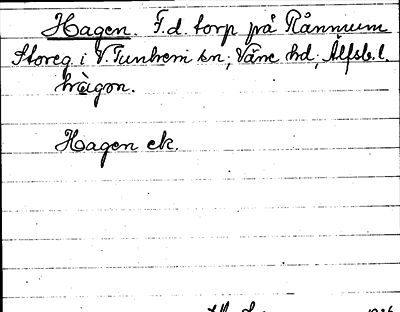 Hagen. F.d. torp på Rånnum
Storeg. i V. Tunhem sn; Väne hd; Älfsb. l.
hàgon.
Hagen ek.